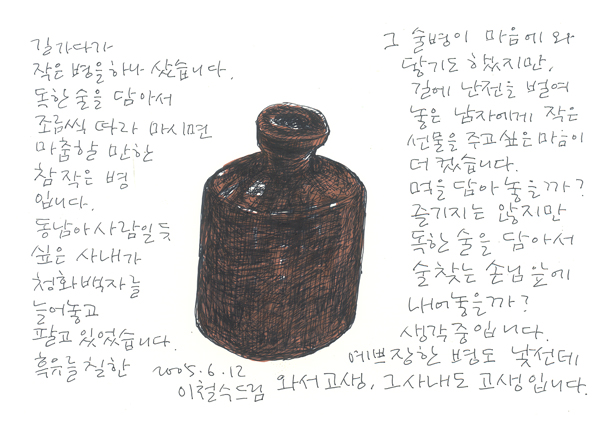 길가다가
작은 병을 하나 샀습니다.
독한 술을 담아서
조금씩 따라 마시면
마춤할 만한
참 작은 병
입니다.
동남아 사람일 듯
싶은 사내가
청화백자를
늘어놓고
팔고 있었습니다.
흑유를 칠한
그 술병이 마음에 와
닿기도 했지만,
길에 난전을 벌여
놓은 남자에게 작은
선물을 주고 싶은 마음이
더 컸습니다.
먹을 담아 놓을까?
즐기지는 않지만
독한 술을 담아서
술찾는 손님 앞에
내어놓을까?
생각중입니다.
예쁘장한 병도 낯선데
와서 고생, 그 사내도 고생입니다.
2005.6.12
이철수드림